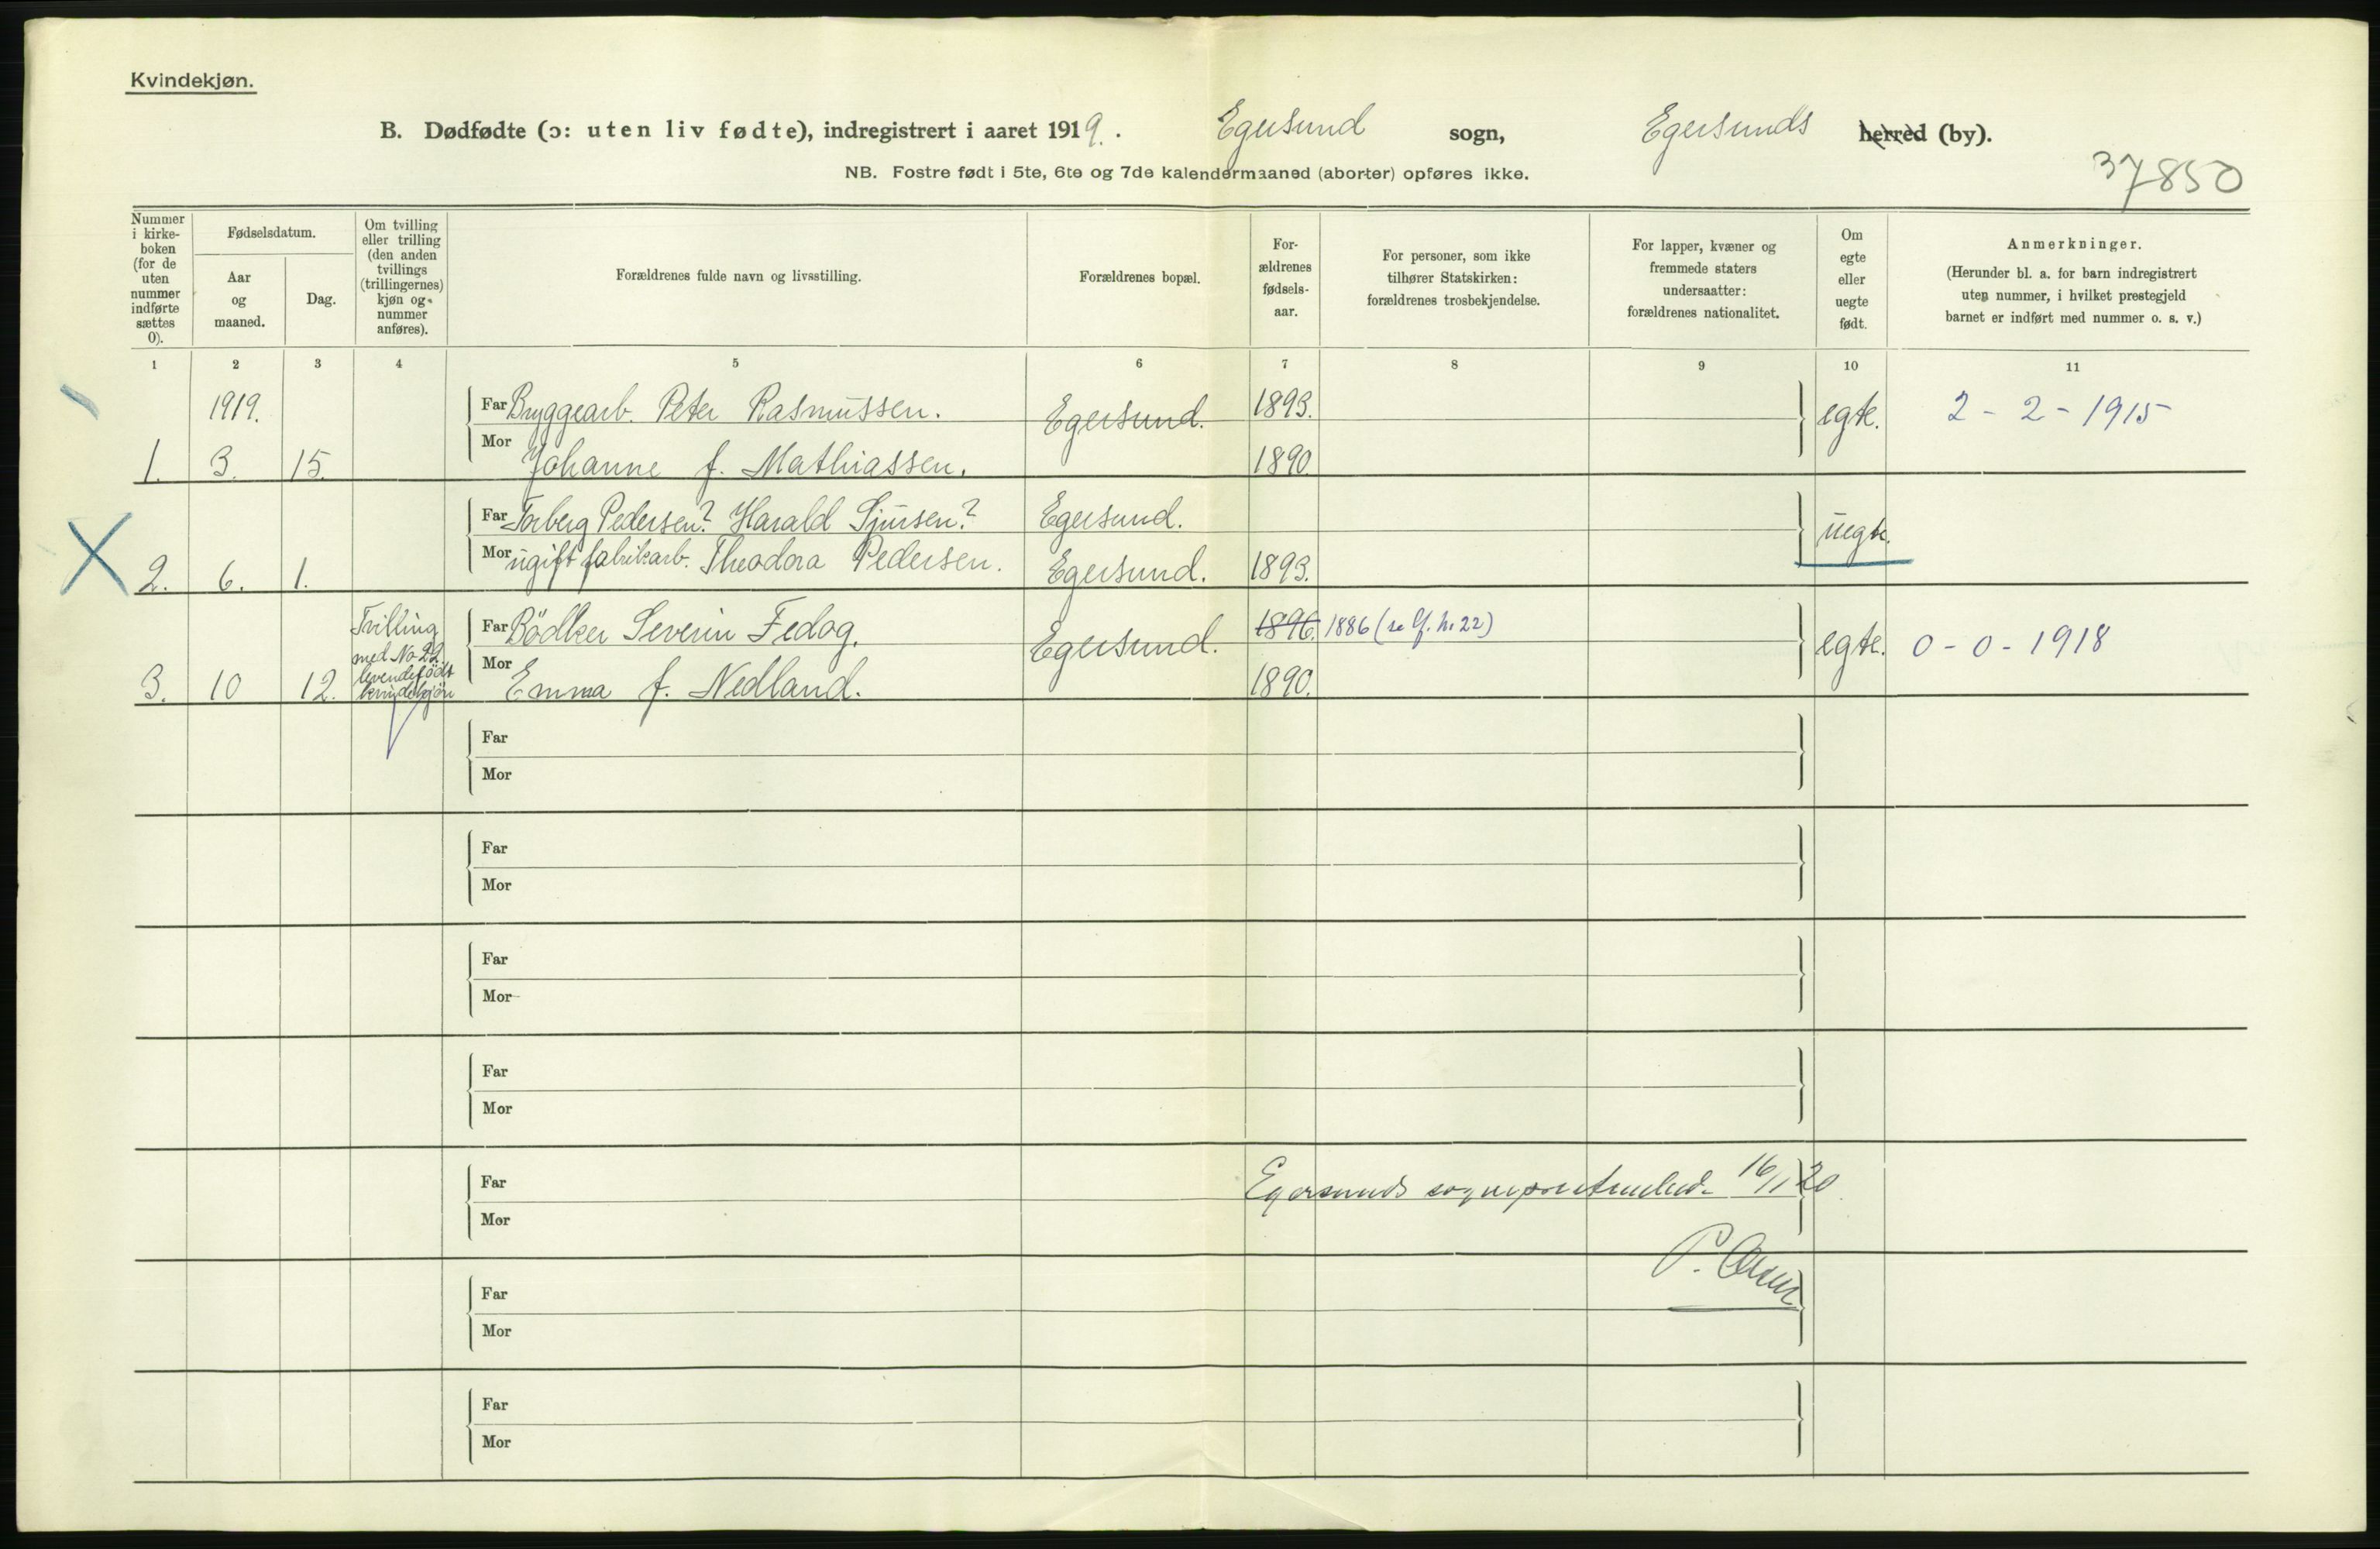 Kvindekjøn.
B. Dødfødte (ɔ: uten liv fødte), indregistrert i aaret 1919. Egersund sogn, Egersunds herred (by).
NB. Fostre født i 5te, 6te og 7de kalendermaaned (aborter) opføres ikke.
37850
Nummer
i kirke-
boken
(for de
uten
nummer
indførte
sættes
0).
Fødselsdatum.
Aar
og
maaned.
Dag.
Om tvilling
eller trilling
(den anden
tvillings
(trillingernes)
kjøn og
nummer
anføres).
Forældrenes fulde navn og livsstilling.
Forældrenes bopæl.
For-
ældrenes
fødsels-
aar.
For personer, som ikke
tilhører Statskirken:
forældrenes trosbekjendelse.
For lapper, kvæner og
fremmede staters
undersaatter:
forældrenes nationalitet.
Om
egte
eller
uegte
født.
Anmerkninger.
(Herunder bl. a. for barn indregistrert
uten nummer, i hvilket prestegjeld
barnet er indført med nummer o. s. v.)
1 2 3 4 5 6 7 8 9 10 11
1919. Far Bryggearb. Peter Rasmussen. Egersund. 1893. egte. 2 - 2 - 1915
1. 3. 15. Mor Johanne f. Mathiassen. 1890
Far Torberg Pedersen? Harald Sjursen? Egersund. uegte.
2. 6. 1. Mor ugift fabrikarb. Theodora Pedersen. Egersund. 1893.
Tvilling
med No 22
levendefödt
kvindekjön
Far Bödker Severin Fedog. Egersund. 1896. 1886 (se lf. nr 22) egte. 0 - 0 - 1918
3. 10 12. Mor Emma f. Nedland. 1890.
Far
Mor
Far
Mor
Far
Mor
Far
Mor
Far Egersunds 16/1 20
Mor
P.
Far
Mor
Far
Mor